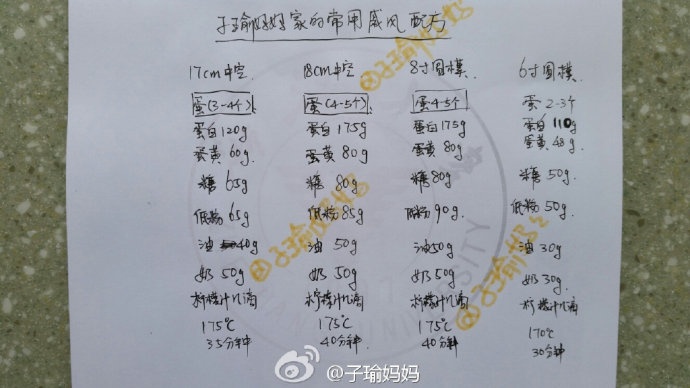 子瑜妈妈家的常用戚风配方
17cm中空 18cm中空 8寸圆模 6寸圆模
蛋(3-4个) 蛋(4-5个) 蛋4-5个 蛋2-3个
蛋白120g 蛋白175g 蛋白175g 蛋白110g
蛋黄60g 蛋黄80g 蛋黄80g 蛋黄48g
糖65g 糖80g 糖80g 糖50g
低粉65g 低粉85g 低粉90g 低粉50g
油40g 油50g 油50g 油30g
奶50g 奶50g 奶50g 奶30g
柠檬汁几滴 柠檬汁几滴 柠檬汁几滴 柠檬汁几滴
175℃ 175℃ 175℃ 170℃
35分钟 40分钟 40分钟 30分钟
@子瑜妈妈
@子瑜妈妈
@子瑜妈妈
@子瑜妈妈